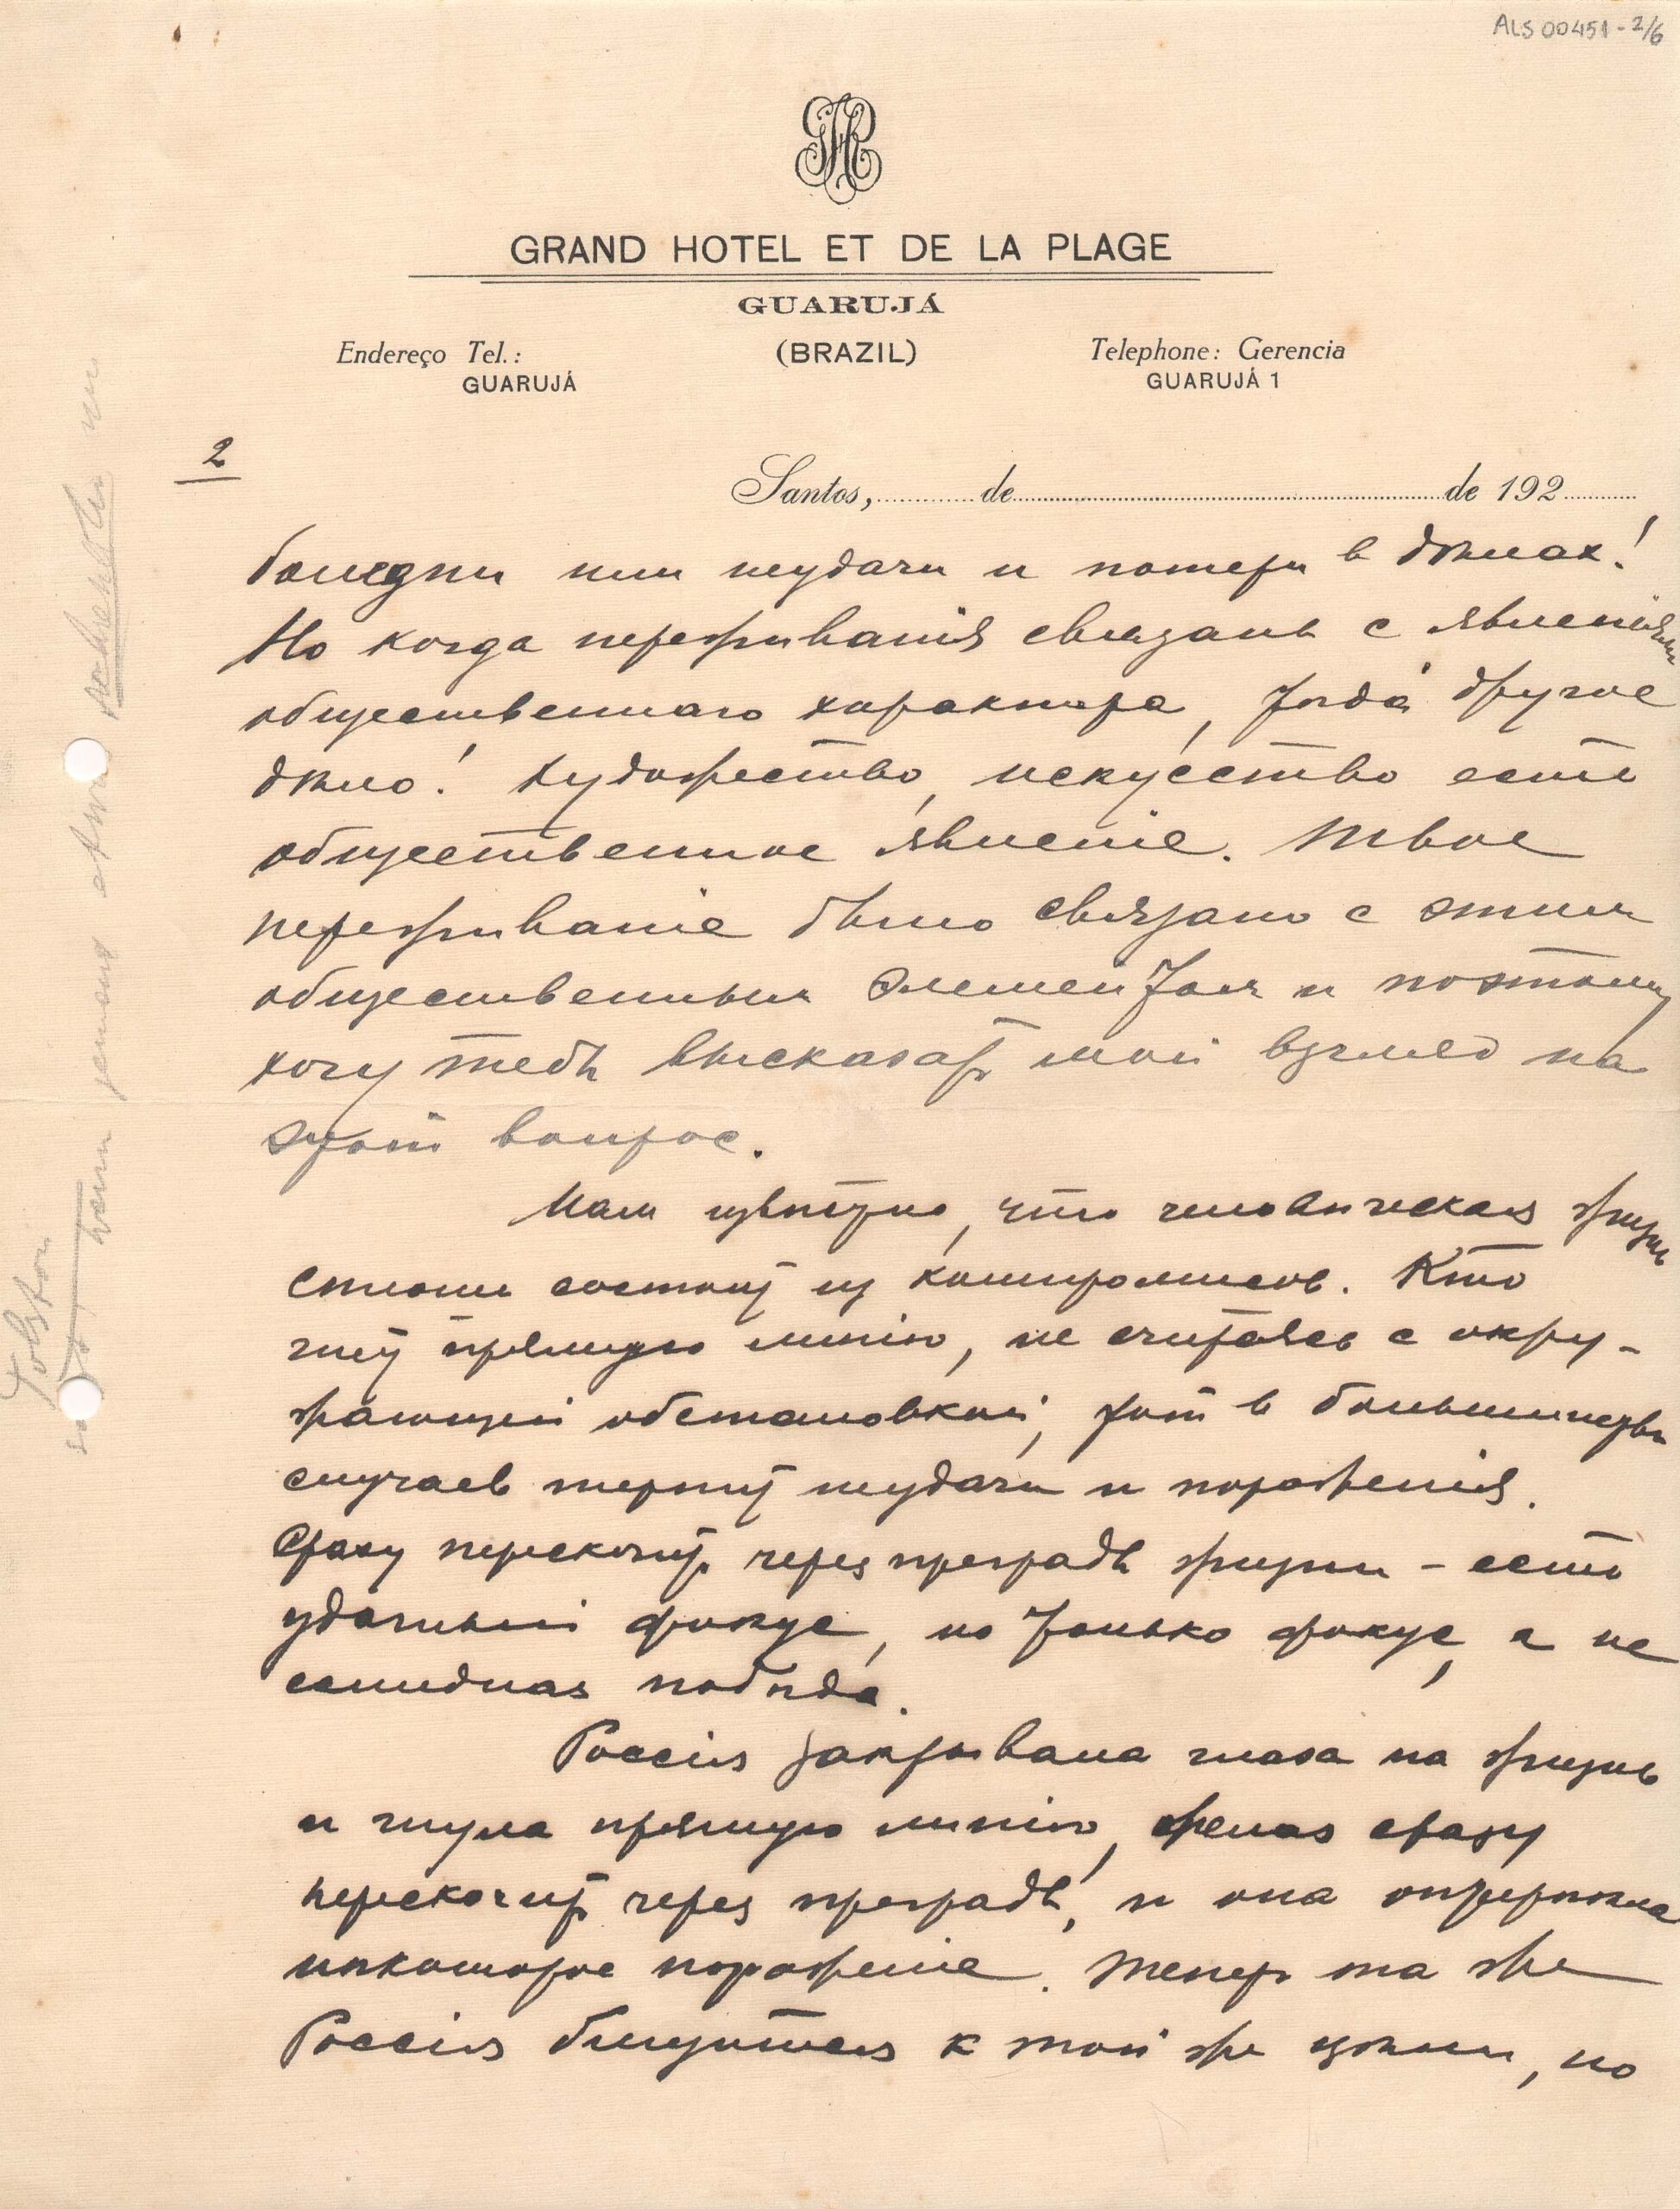 ALS 00451 - 2/6
GRAND HOTEL ET DE LA PLAGE
GUARUJÁ
(BRAZIL)
Endereço Tel.:
GUARUJÁ
Telephone: Gerencia
GUARUJÁ 1
2
Santos, de de 192
болѣзни или неудачи и потери в дѣлах!
Но когда переживанія связаны с явленіями
общественнаго характера, тогда другое
дѣло! Художество, искусство есть
общественное явленіе. Твое
переживаніе было связано с этим
общественным элементом и поэтому
хочу тебѣ высказать мой взгляд на
этот вопрос.
Нам извѣстно, что человѣческая жизнь
состоит из компромисов. Кто
гнет прямую линію, не считаясь с окру-
жающей обстановкой, тот в большинствѣ
случаев терпит неудачи и пораженія.
Сразу перескочить через преграды жизни – есть
удачный фокус, но только фокус, а не
солидная побѣда.
Россія закрывала глаза на жизнь
и гнула прямую линію, желая сразу
перескочить через преграды, и она
нѣкоторое пораженіе. Теперь та же
Россія к той же цѣли, но
Tolstoi